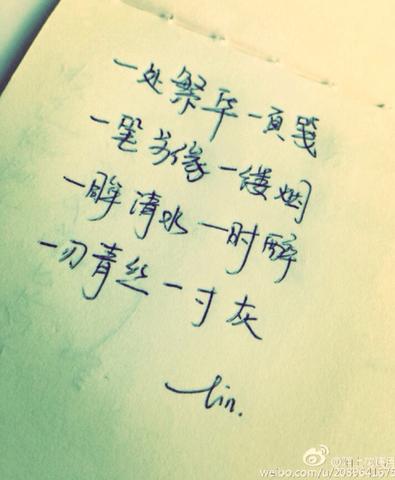 一处繁华一页笺
一笔芳缘一缕烟
一眸清水一时醉
一刃青丝一寸灰
lin.
weibo.com/u/2089641675